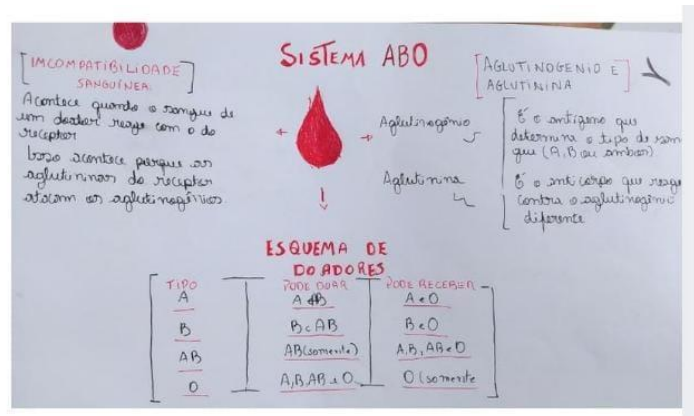 SISTEMA ABO
[IMCOMPATIBILIDADE
SANGUÍNEA]
Acontece quando o sangue de
um doador reage com o do
receptor
Isso acontece porque as
aglutininas do receptor
atacam os aglutinogênios.
Aglutinogênio
Aglutinina
[AGLUTINOGENIO E
AGLUTININA]
É o antígeno que
determina o tipo de san
gue (A, B ou ambos)
É o anticorpo que reage
contra o aglutinogênio
diferente
ESQUEMA DE
DOADORES
TIPO PODE DOAR PODE RECEBER
A A AB A e O
B B e AB B e O
AB AB (somente) A, B, AB e O
O A, B, AB e O O (somente